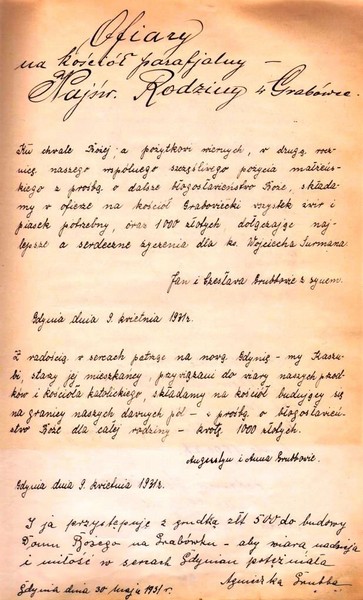 Ofiary
na kościół parafjalny —
Najśw. Rodziny w Grabówce.
Ku chwale Bożej, a pożytkowi wiernych, w drugą rocz-
nicę naszego wspólnego szczęśliwego pożycia małżeńs-
kiego z prośbą o dalsze błogosławieństwo Boże, składa-
my w ofierze na kościół Grabowiecki wszystek żwir i
piasek potrzebny, oraz 1000 złotych, dołączając naj-
lepsze a serdeczne życzenia dla ks. Wojciecha Surmana
Jan i Czesława Grubbowie z synem.
Gdynia dnia 9. kwietnia 1931r.
Z radością w sercach patrząc na nową Gdynię — my Kaszu-
bi, starzy jej mieszkańcy, przywiązani do wiary naszych przod-
ków i kościoła katolickiego, składamy na kościół budujący się
na granicy naszych dawnych pól — z prośbą o błogosławień-
stwo Boże dla całej rodziny — kwotę 1000 złotych.
Augustyn i Anna Grubbowie.
Gdynia dnia 9. kwietnia 1931r.
I ja przystępuję z grudką złt 500 do budowy
Domu Bożego na Grabówku — aby wiara nadzieja
i miłość w sercach Gdynian potężniała
Agnieszka Grubba
Gdynia dnia 30 maja 1931 r.